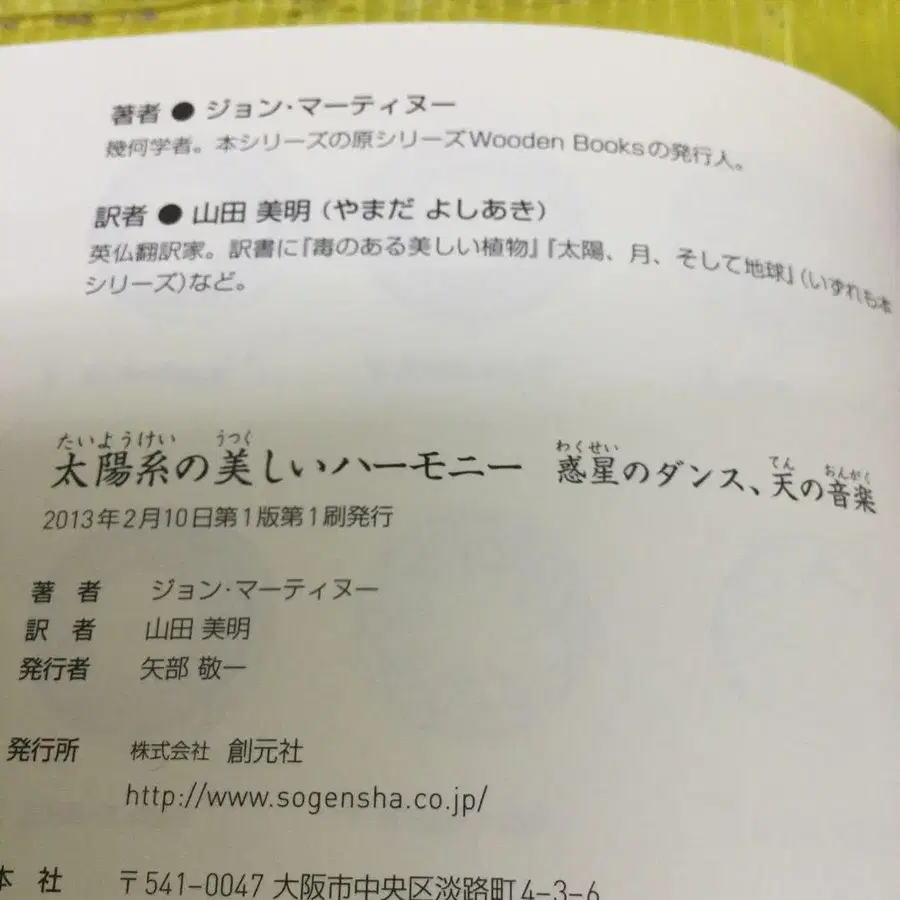 著者 ● ジョン・マーティヌー
幾何学者。本シリーズの原シリーズWooden Booksの発行人。
訳者 ● 山田 美明(やまだ よしあき)
英仏翻訳家。訳書に『毒のある美しい植物』『太陽、月、そして地球』(いずれも本
シリーズ)など。
たいようけい うつく わくせい てん おんがく
太陽系の美しいハーモニー 惑星のダンス、天の音楽
2013年2月10日第1版第1刷発行
著 者 ジョン・マーティヌー
訳 者 山田 美明
発行者 矢部 敬一
発行所 株式会社 創元社
http://www.sogensha.co.jp/
本 社 〒541-0047 大阪市中央区淡路町4-3-6